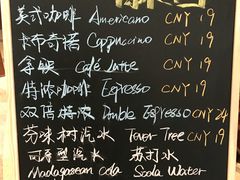 美式咖啡 Americano CNY 19
卡布奇诺 Cappuccino CNY 19
拿铁 Café Latte CNY 19
特浓咖啡 Espresso CNY 19
双倍特浓 Double Espresso CNY 24
芬浓树汽水 Fever Tree CNY 19
可乐型汽水 苏打水
Madagascan cola Soda Water